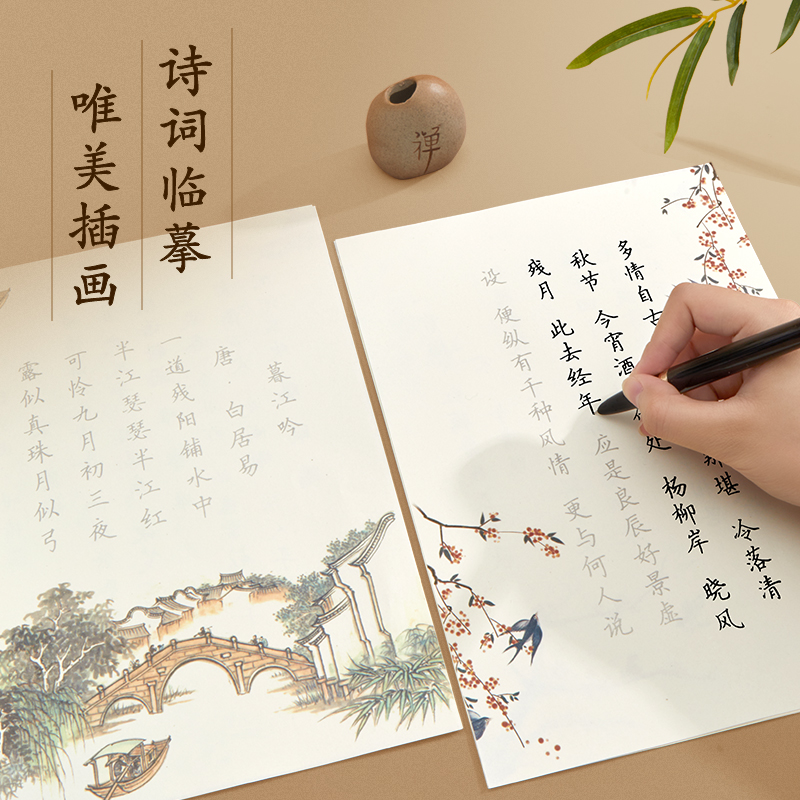 诗词临摹
唯美插画
禅
暮江吟
唐·白居易
一道残阳铺水中
半江瑟瑟半江红
可怜九月初三夜
露似真珠月似弓
多情自古 那堪 冷落清
秋节 今宵酒 何处 杨柳岸 晓风
残月 此去经年 应是良辰好景虚
设 便纵有千种风情 更与何人说